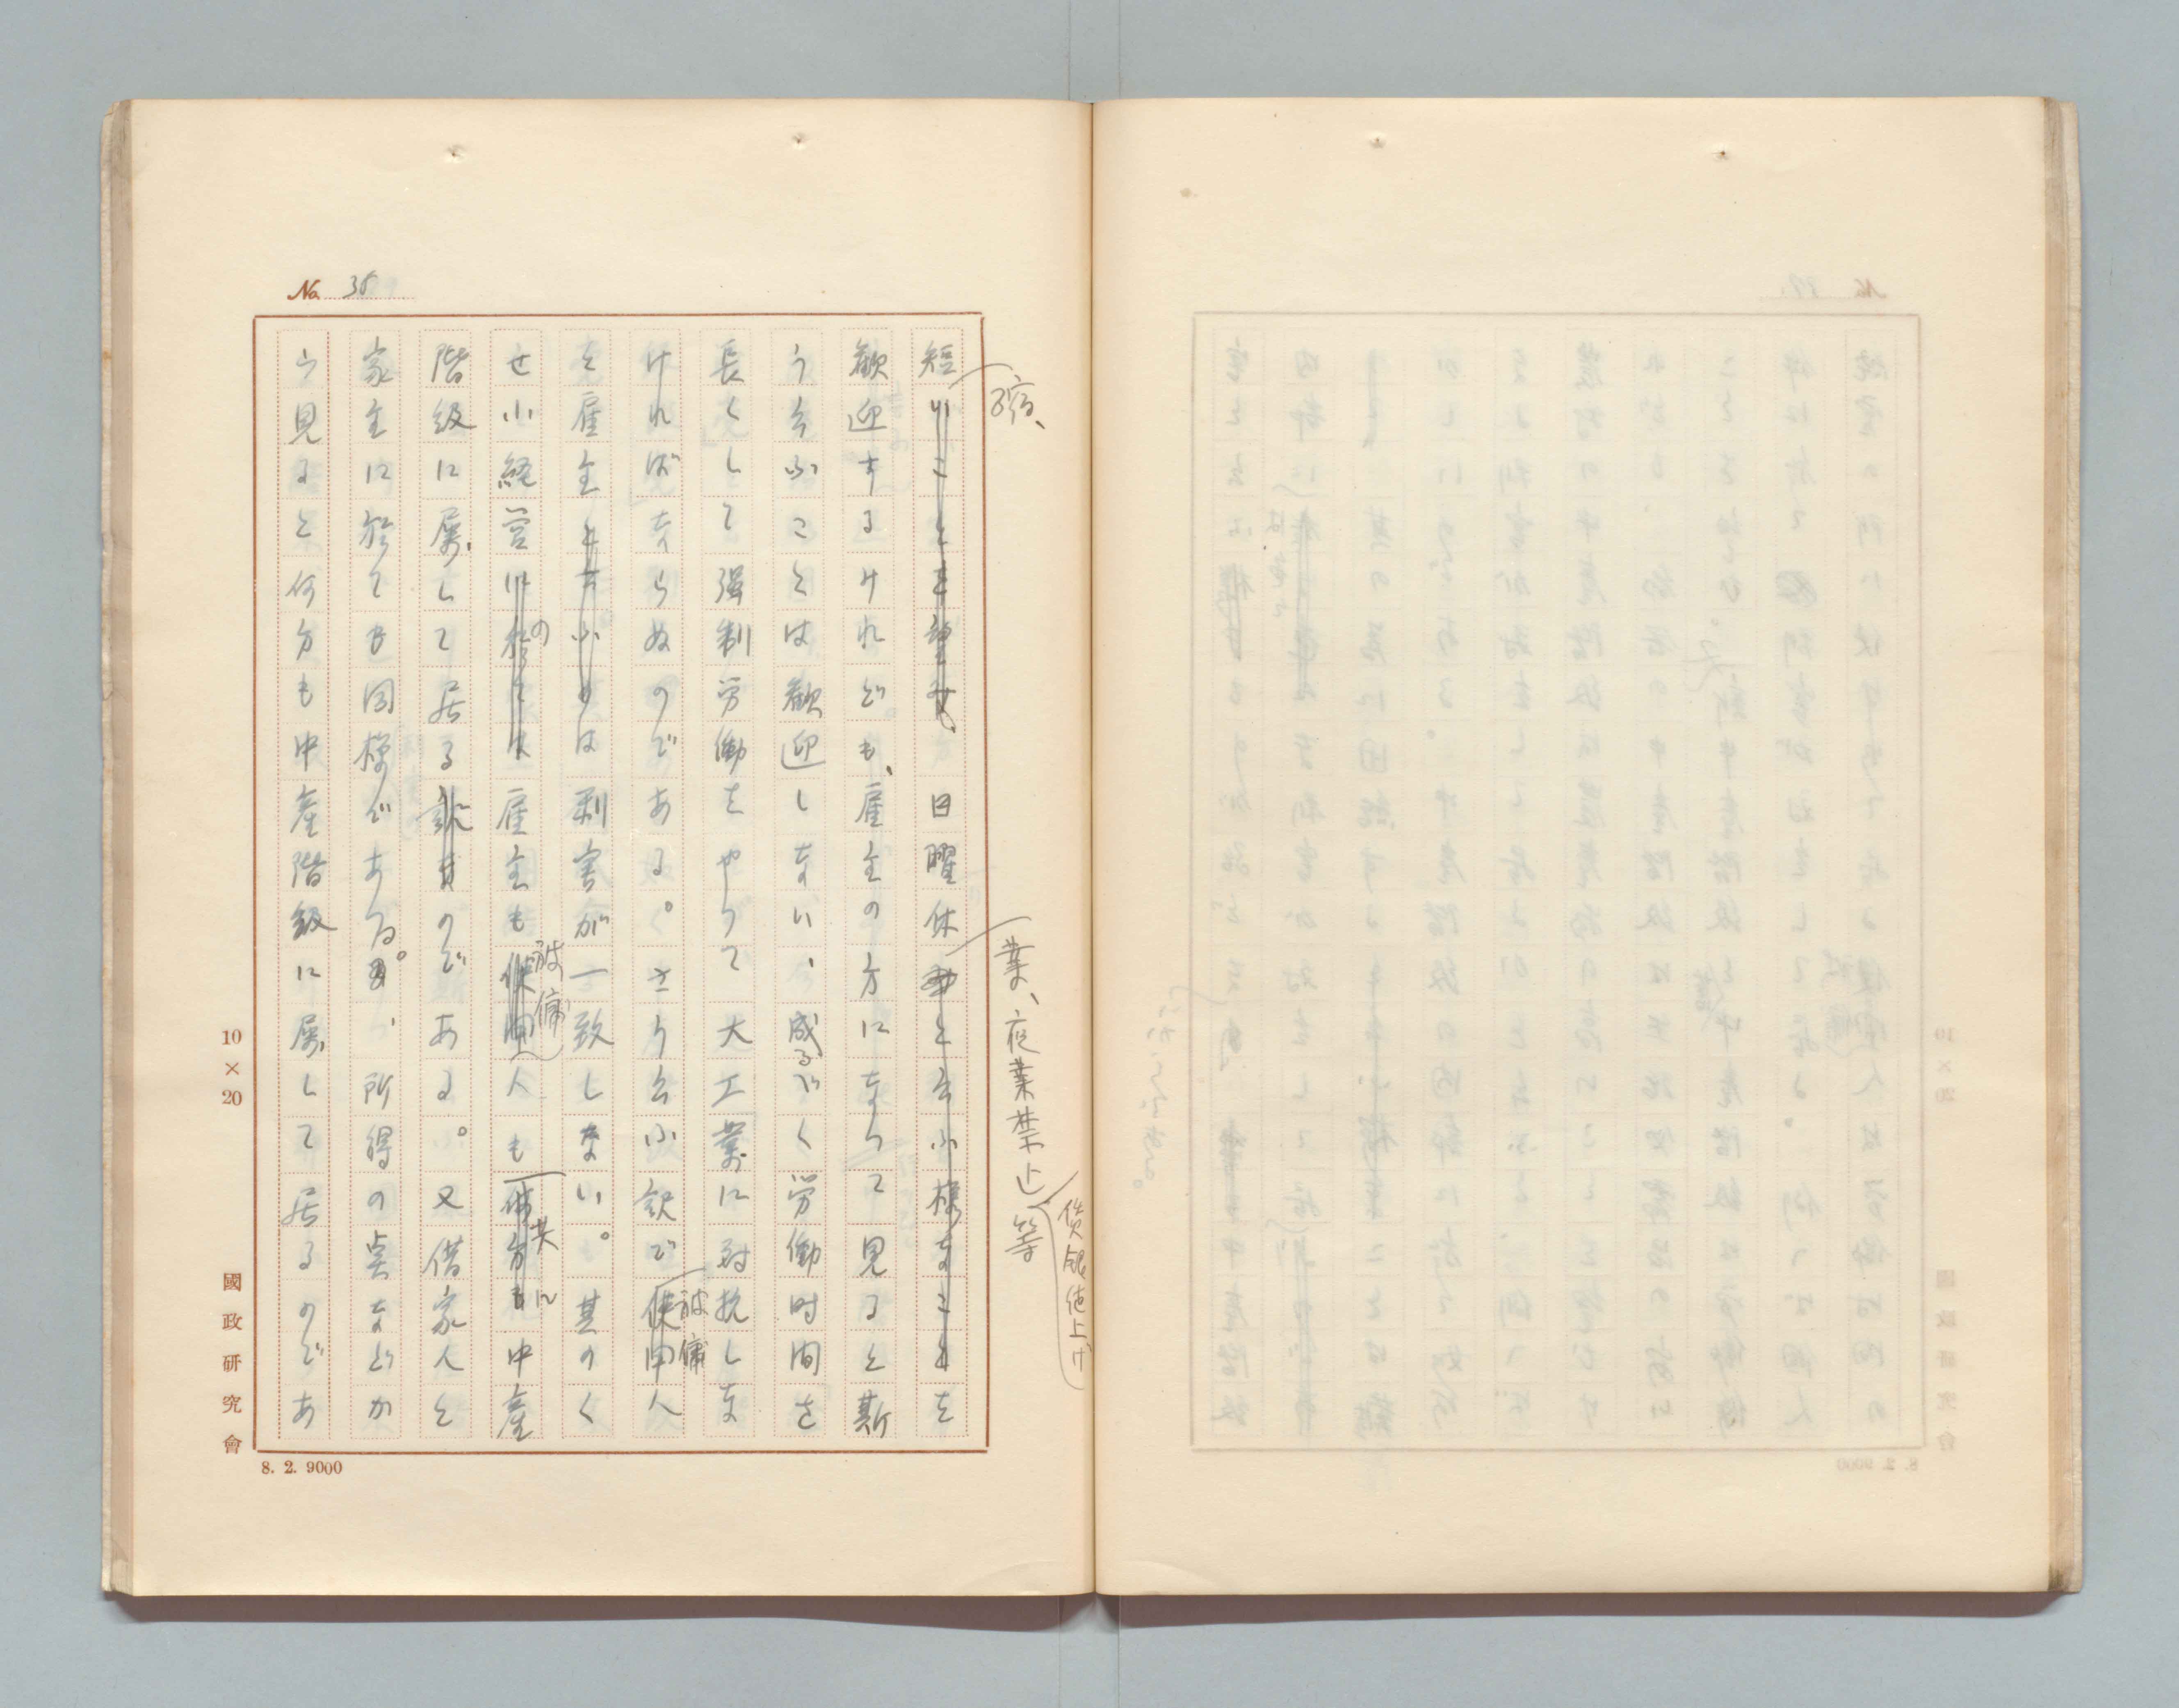 No. 35
短いことを望み、日曜休みと云ふ様なことを
縮、
業、夜業禁止等
賃銀値上げ
歓迎するけれども、雇主の方になつて見ると斯
う云ふことは歓迎しない、成るべく労働時間を
長くして強制労働をやつて大工業に対抗しな
ければならぬのである。さう云ふ訳で使用人
被傭
と雇主と云ふものは利害が一致しない。其のく
せ小経営に於ては雇主も使用人も
の
被傭
共に
中産
階級に属して居るのである。又借家人と
家主に於ても同様である。、所得の点などか
ら見ると何方も中産階級に属して居るのであ
10×20 國政研究會
8. 2. 9000